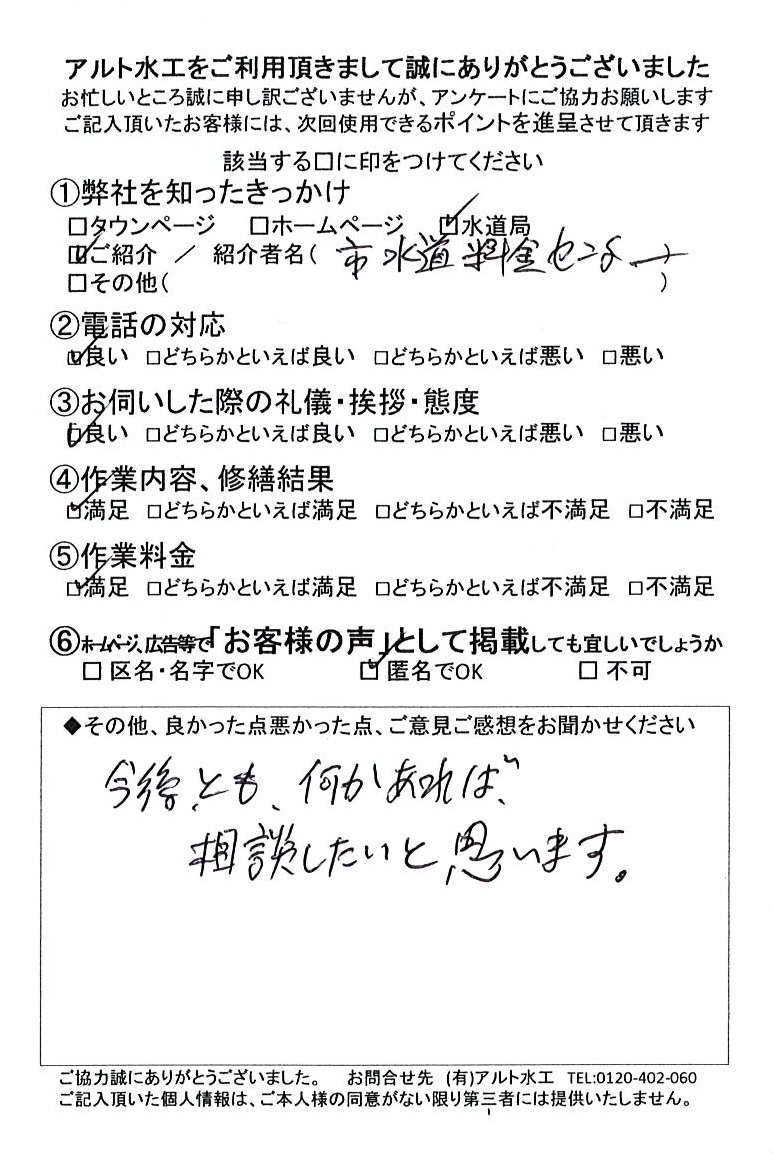 アルト水工をご利用頂きまして誠にありがとうございました
お忙しいところ誠に申し訳ございませんが、アンケートにご協力お願いします
ご記入頂いたお客様には、次回使用できるポイントを進呈させて頂きます
該当する□に印をつけてください
①弊社を知ったきっかけ
□タウンページ □ホームページ ☑水道局
☑ご紹介 ／ 紹介者名( 市水道料金センター
□その他( )
②電話の対応
☑良い □どちらかといえば良い □どちらかといえば悪い □悪い
③お伺いした際の礼儀・挨拶・態度
☑良い □どちらかといえば良い □どちらかといえば悪い □悪い
④作業内容、修繕結果
☑満足 □どちらかといえば満足 □どちらかといえば不満足 □不満足
⑤作業料金
☑満足 □どちらかといえば満足 □どちらかといえば不満足 □不満足
⑥ホームページ、広告等で「お客様の声」として掲載しても宜しいでしょうか
□ 区名・名字でOK ☑ 匿名でOK □ 不可
◆その他、良かった点悪かった点、ご意見ご感想をお聞かせください
今後とも、何かあれば、
相談したいと思います。
ご協力誠にありがとうございました。 お問合せ先 (有)アルト水工 TEL:0120-402-060
ご記入頂いた個人情報は、ご本人様の同意がない限り第三者には提供いたしません。